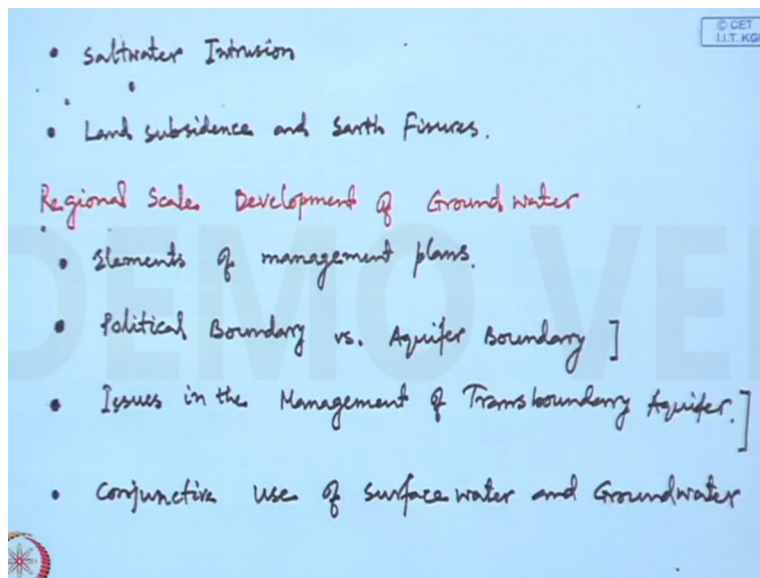 © CET
I.I.T. KGP
• Saltwater Intrusion
• Land subsidence and Earth Fissures.
Regional Scale Development of Groundwater
• Elements of management plans.
• Political Boundary vs. Aquifer Boundary ]
• Issues in the Management of Transboundary Aquifer. ]
• Conjunctive use of surface water and Groundwater
DEMO VE